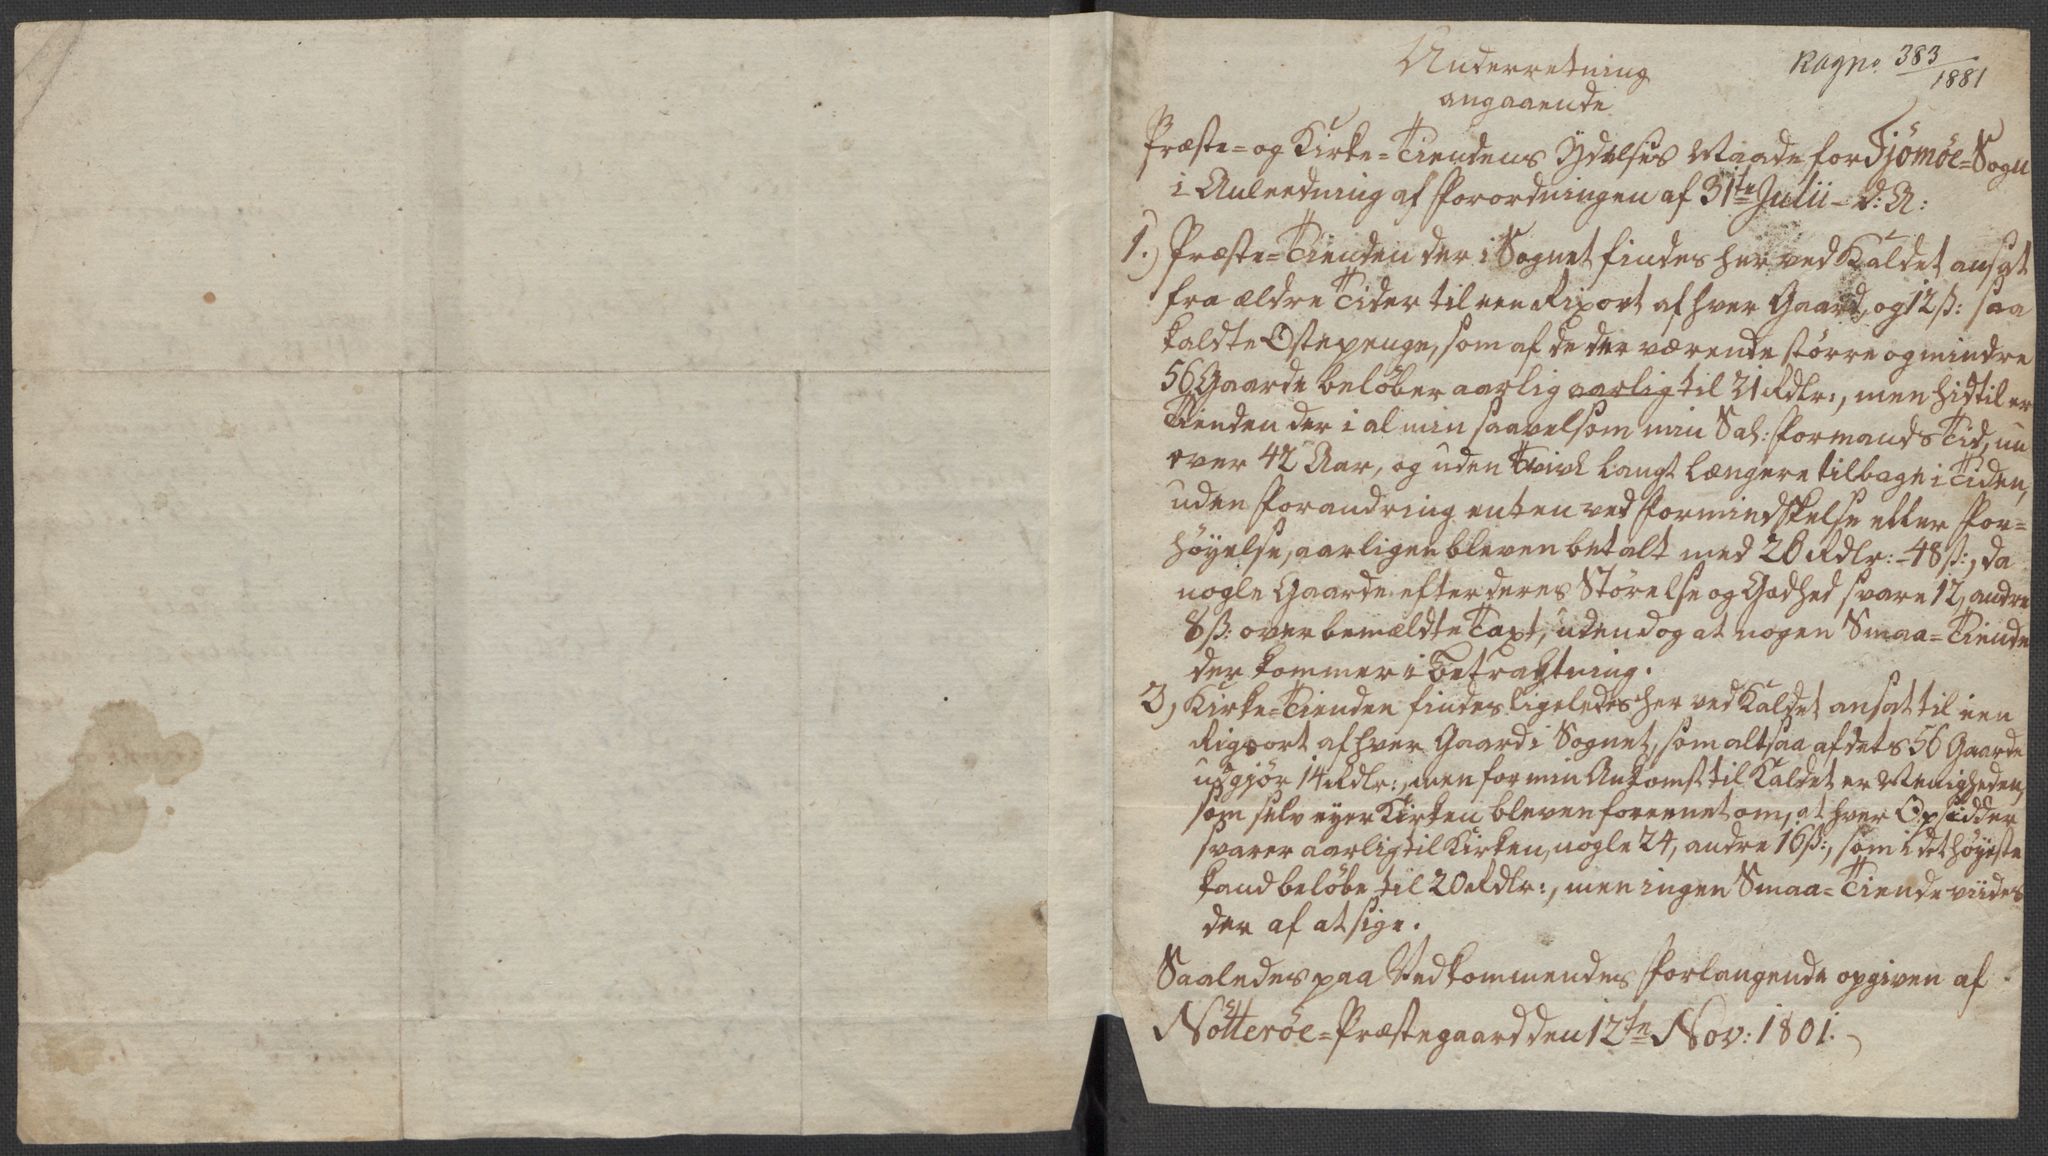 Underretning
angaaende
Ragno 383/1881
Præste- og Kirke-Tiendens Ydelses Maade for Tjömöe-Sogn
i Anleedning af Forordningen af 31te Julii - d: A:
1.) Præste-Tienden der i Sognet findes her ved Kaldet ansat
fra ældre Tider til een Rixort af hver Gaard, og 12 ß: saa
kaldte Ostepenge, som af de der værende större og mindre
56 Gaarde belöber aarlig aarlig til 21 Rdlr:, men hidtil er
Tienden der i al min saavelsom min Sal: Formands Tid, nu
over 42 Aar, og uden Tvivl langt længere tilbage i Tiden,
uden Forandring enten ved Formindskelse eller For-
höyelse, aarligen bleven betalt med 26 Rdlr: 48 ß:, da
nogle Gaarde efter deres Störelse og Godhed svare 12, andre
8 ß: over bemældte Taxt, uden dog at nogen Smaa-Tiende
der kommer i Betragtning.
2) Kirke-Tienden findes ligeledes her ved Kaldet ansat til een
Rigsort af hver Gaard i Sognet, som altsaa af dets 56 Gaarde
udgjör 14 Rdlr:, men for min Ankomst til Kaldet er Menigheden,
som selv eyer Kirken bleven foreenet om, at hver Opsidder
svarer aarlig til Kirken, nogle 24, andre 16 ß:, som i det höyeste
kand belöbe til 20 Rdlr:, men ingen Smaa-Tiende viides
der af at sige.
Saaledes paa Vedkommendes Forlangende opgiven af
Nötteröe-Præstegaard den 12te Nov: 1801.